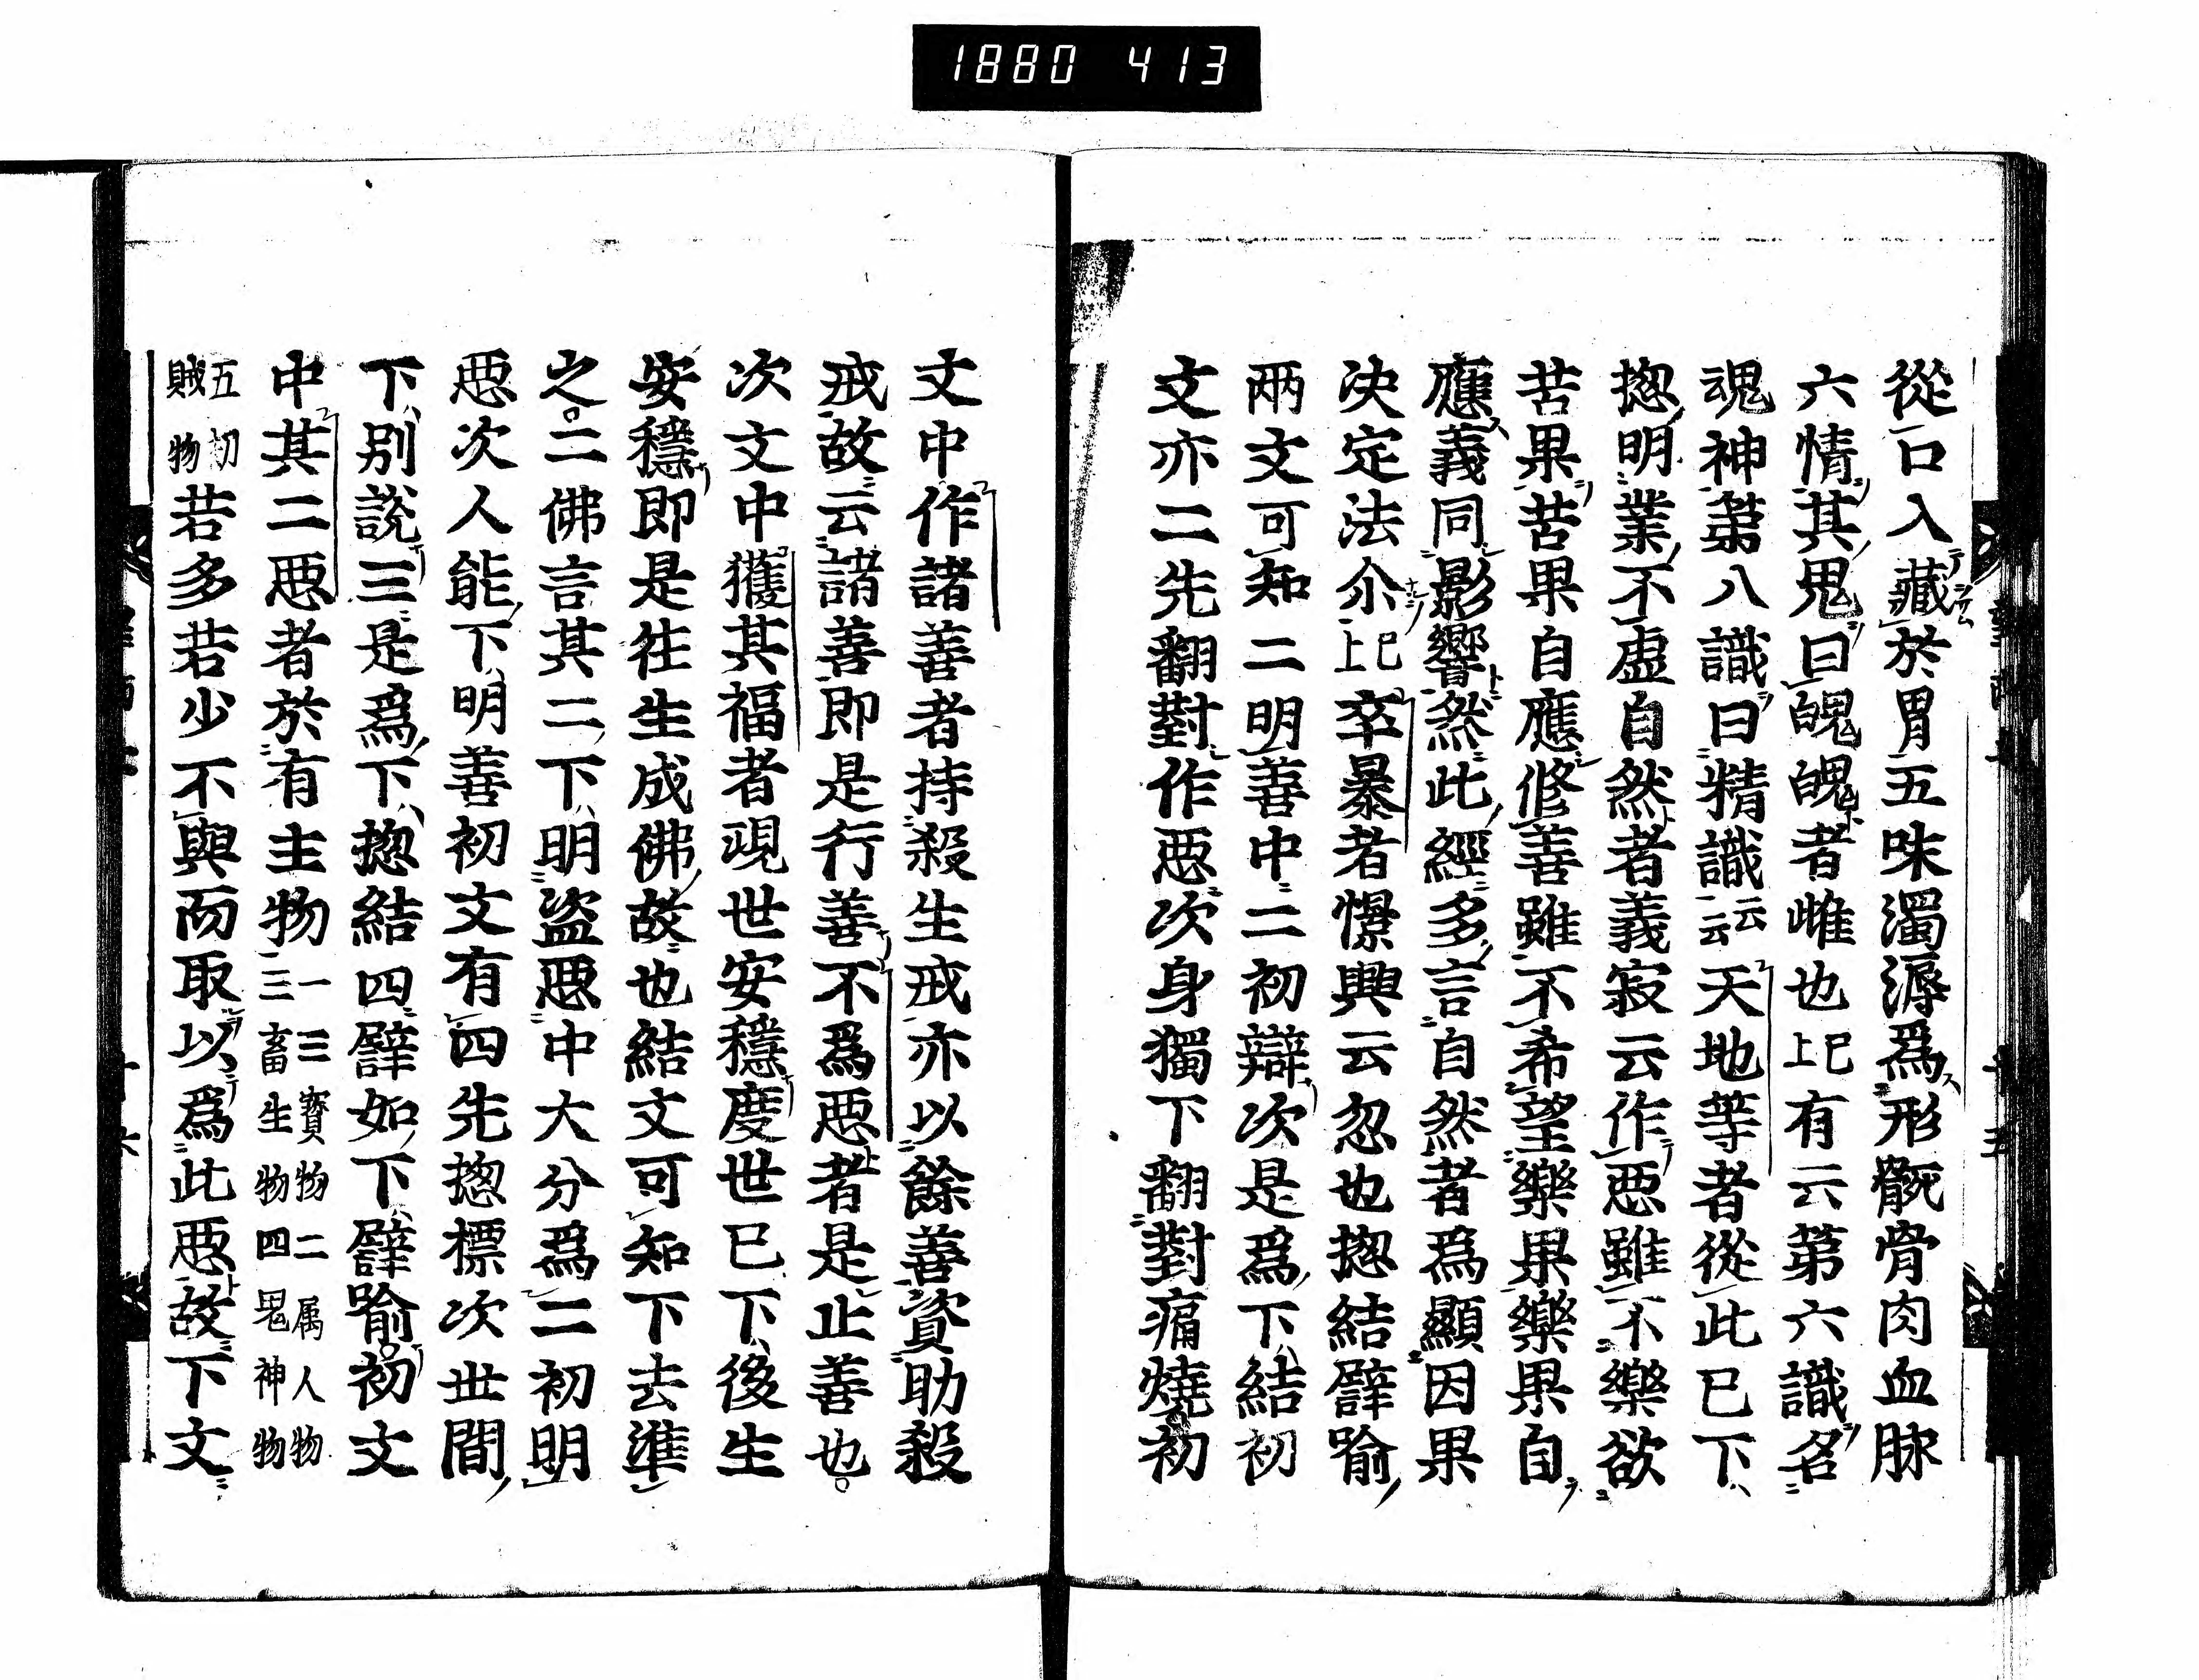 1880 413
從口入藏於胃五味濁溽爲形骸骨肉血脉
六情其鬼曰魄魄者雌也已上有云第六識名
魂神第八識曰精識云云天地等者從此已下
揔明業不虛自然者義寂云作惡雖不樂欲
苦果苦果自應修善雖不希望樂果樂果自
應義同影響然此經多言自然者爲顯因果
決定法尒已上卒暴者憬興云忽也揔結譬喻
兩文可知二明善中二初辯次是爲下結初
文亦二先翻對作惡次身獨下翻對痛燒初
文中作諸善者持殺生戒亦以餘善資助殺
戒故云諸善即是行善不爲惡者是止善也
次文中獲其福者現世安穩度世已下後生
安穩即是往生成佛故也結文可知下去準
之二佛言其二下明盜惡中大分爲二初明
惡次人能下明善初文有四先揔標次世間
下別說三是爲下揔結四譬如下譬喻初文
中其二惡者於有主物一三寶物二属人物三畜生物四鬼神物
五劫賊物若多若少不與而取以爲此惡故下文